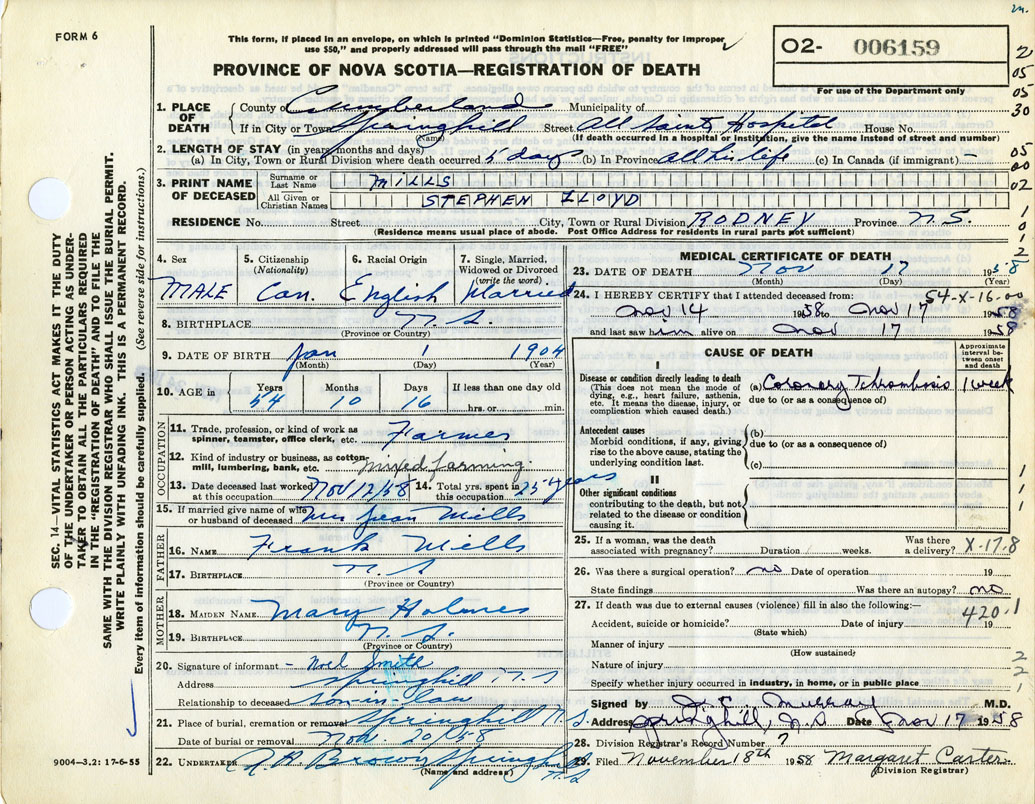 FORM 6
This form, if placed in an envelope, on which is printed "Dominion Statistics—Free, penalty for improper
use $50," and properly addressed will pass through the mail "FREE"
PROVINCE OF NOVA SCOTIA—REGISTRATION OF DEATH
O2- 006159
For use of the Department only
SEC. 14—VITAL STATISTICS ACT MAKES IT THE DUTY
OF THE UNDERTAKER OR PERSON ACTING AS UNDER-
TAKER TO OBTAIN ALL THE PARTICULARS REQUIRED
IN THE "REGISTRATION OF DEATH" AND TO FILE THE
SAME WITH THE DIVISION REGISTRAR WHO SHALL ISSUE THE BURIAL PERMIT.
WRITE PLAINLY WITH UNFADING INK. THIS IS A PERMANENT RECORD.
Every item of information should be carefully supplied. (See reverse side for instructions.)
1. PLACE OF DEATH
County of Cumberland Municipality of
If in City or Town Springhill Street All Saints Hospital House No.
(Name) (If death occurred in a hospital or institution, give the name instead of street and number)
2. LENGTH OF STAY (in years, months and days)
(a) In City, Town or Rural Division where death occurred 5 days (b) In Province all his life (c) In Canada (if immigrant) –
3. PRINT NAME OF DECEASED
Surname or Last Name MILLS
All Given or Christian Names STEPHEN LLOYD
RESIDENCE No. Street City, Town or Rural Division RODNEY Province N.S.
(Residence means usual place of abode. Post Office Address for residents in rural parts not sufficient)
4. Sex MALE
5. Citizenship (Nationality) Can.
6. Racial Origin English
7. Single, Married, Widowed or Divorced (write the word) Married
8. BIRTHPLACE N.S.
(Province or Country)
9. DATE OF BIRTH Jan 1 1904
(Month) (Day) (Year)
10. AGE in Years 54 Months 10 Days 16 If less than one day old
hrs. or min.
OCCUPATION
11. Trade, profession, or kind of work as
spinner, teamster, office clerk, etc. Farmer
12. Kind of industry or business, as cotton-
mill, lumbering, bank, etc. Mixed farming.
13. Date deceased last worked at this occupation Nov 12/58
14. Total yrs. spent in this occupation 25 years
15. If married give name of wife
or husband of deceased Mrs Jean Mills
FATHER
16. NAME Frank Mills
17. BIRTHPLACE N.S
(Province or Country)
MOTHER
18. MAIDEN NAME Mary Holmes
19. BIRTHPLACE N.S.
(Province or Country)
20. Signature of informant – Noel Smith
Address Springhill N.S
Relationship to deceased Son-in-law
21. Place of burial, cremation or removal Springhill N.S.
Date of burial or removal Nov. 20/58
22. UNDERTAKER Brown Springhill
(Name and address) N.S
9004—3.2: 17-6-55
MEDICAL CERTIFICATE OF DEATH
23. DATE OF DEATH Nov 17 1958
(Month) (Day) (Year)
54-X-16-00
24. I HEREBY CERTIFY that I attended deceased from:
Nov 14 1958 to Nov 17 1958
and last saw him alive on Nov 17 1958
CAUSE OF DEATH
Approximate interval between onset and death
I
Disease or condition directly leading to death
(This does not mean the mode of
dying, e.g., heart failure, asthenia,
etc. It means the disease, injury, or
complication which caused death.)
(a) Coronary Thrombosis 1 week
due to (or as a consequence of)
Antecedent causes
Morbid conditions, if any, giving
rise to the above cause, stating the
underlying condition last.
(b)
due to (or as a consequence of)
(c)
II
Other significant conditions
contributing to the death, but not
related to the disease or condition
causing it.
25. If a woman, was the death
associated with pregnancy? Duration weeks. Was there a delivery? X-17.8
26. Was there a surgical operation? no Date of operation 19
State findings Was there an autopsy? no
27. If death was due to external causes (violence) fill in also the following:—
420.1
Accident, suicide or homicide? Date of injury 19
(State which)
Manner of injury
(How sustained)
Nature of injury
Specify whether injury occurred in industry, in home, or in public place
Signed by J. C. Murray M.D.
Address Springhill, N.S Date Nov 17 1958
28. Division Registrar's Record Number 7
29. Filed November 18th 1958 Margaret Carter
(Division Registrar)
2
05
05
30
05
00
02
1
0
1
2
1
1
1
2
2
1